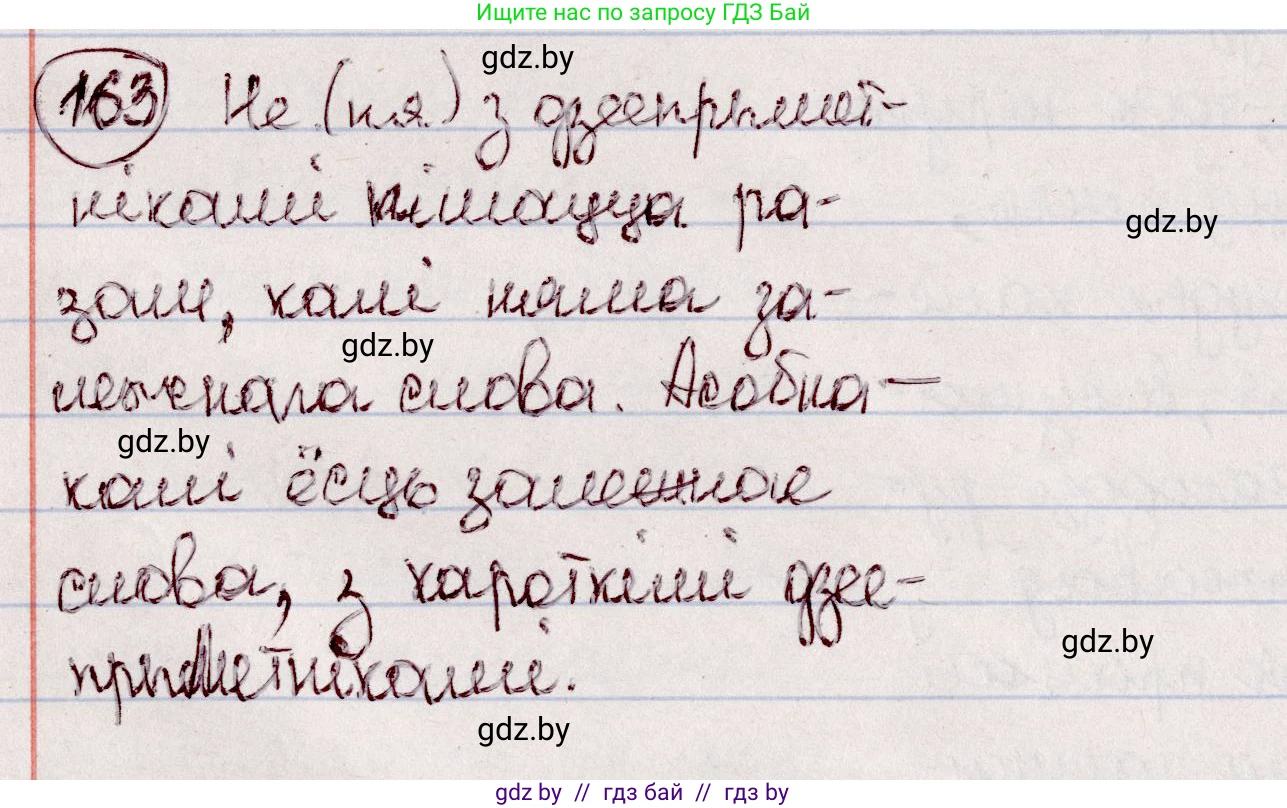 Ищите нас по запросу ГДЗ Бай
gdz.by
163 Не (ня) з дзеепрымет-
нікамі пішацца ра-
gdz.by
зам, калі няма за-
gdz.by
лежнага слова. Асобна —
gdz.by
калі ёсць залежнае
слова, з кароткімі дзее-
gdz.by
прыметнікамі.
gdz.by
gdz by // гдз бай // гдз by